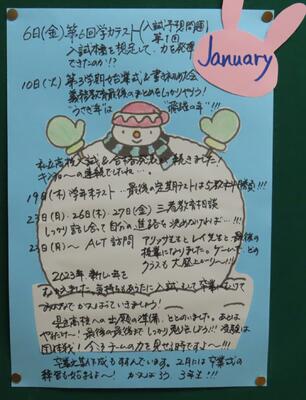 January
6日(金) 第6回学力テスト(入試予想問題)第1回
入試本番を想定して、力を発揮
できたのか!?
10日(火) 第3学期始業式&書初め大会
義務教育最後のまとめをしっかりやろう!
"うさぎ年"は "飛躍の年"!!!
私立高校入試&合格発表が続きました!
19日(木) 学年末テスト…最後の定期テストは
23日(月)・26日(木)・27日(金) 三者教育相談
しっかり話し合って自分の進路を決めなければ…!!!
23日(月)~ ALT訪問 アリッサ先生とレイ先生と最後の
授業になりました。ゲームで、どの
クラスも大盛上がり~!!!
2023年 新しい年を
むかえました。気持ちもあらたに入試、そして卒業にむけて
がんばっていきましょう!
県立高校への出願の準備、ととのいました。あとは
やれる!最後の最後までしっかり見せよう!!!受験は
団体戦!今こそチームの力を見せる時です~!!!
卒業文集作成もすすんでいます。2月には卒業式の
練習も始まるよ~! がんばろう 3年生!!!